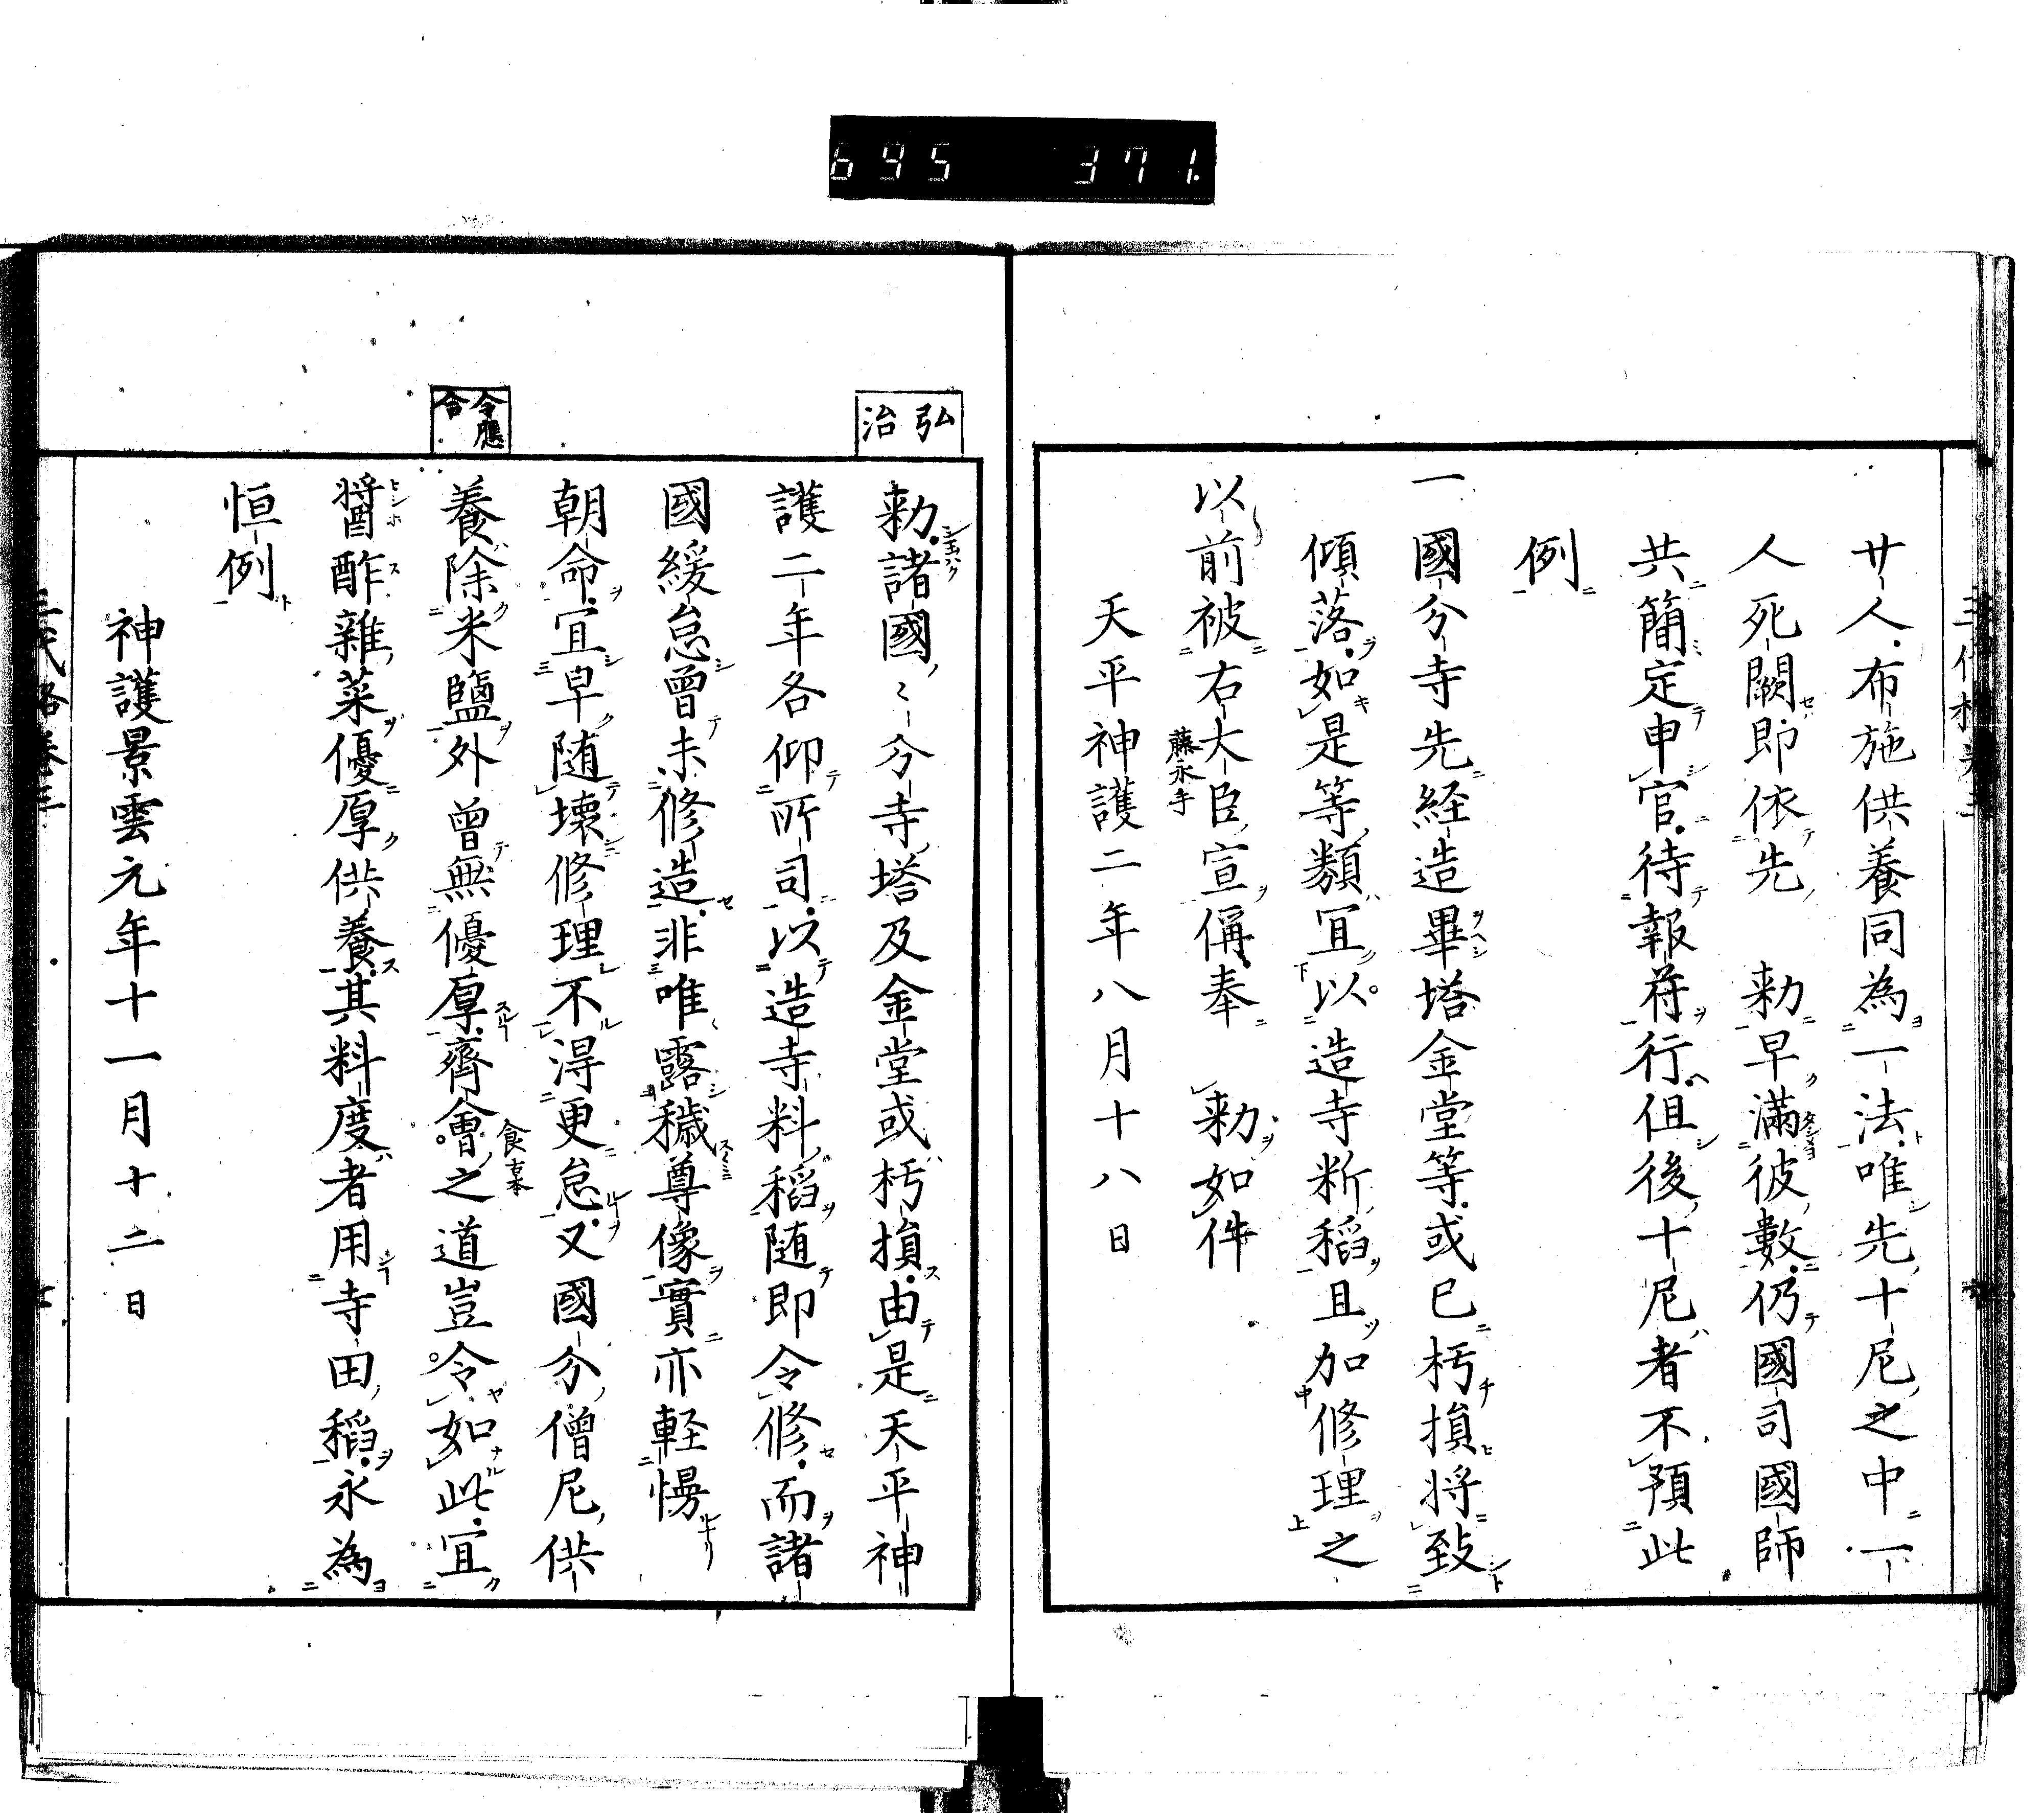 645 371.
廿人布施供養同為一法唯先十尼之中一
人死闕即依先　勅早滿彼數仍國司國師
共簡定申官待報符行但後十尼者不預此
例
一國分寺先経造畢塔金堂等或已朽損将致
傾落如是等類冝以造寺断稻且加修理之
以前被右大臣宣偁奉　勅如件
藤永手
天平神護二年八月十八日
弘
治
勅諸國〻分寺塔及金堂或朽損由是天平神
護二年各仰所司以造寺料稻随即令修而諸
國緩怠曽未修造非唯露穢尊像實亦軽慢
朝命冝早随壊修理不得更怠又國分僧尼供
令應
合
養除米鹽外曽無優厚齊會之道豈令如此宜
食本
醤酢雜菜優厚供養其料度者用寺田稻永為
恒例
神護景雲元年十一月十二日